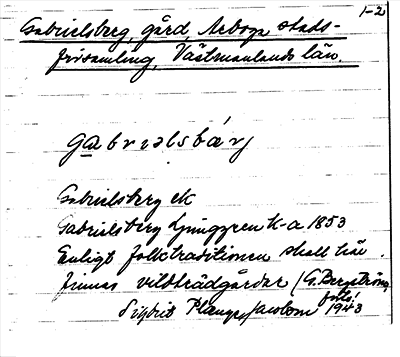 1-2
Gabrielsberg, gård, Arboga stads-
församling, Västmanlands län.
gabriəlsbærj
Gabrielsberg ek
Gabrielsberg Ljunggren k-a 1853
Enligt folktraditionen skall här
finnas vildträdgårdar (G. Bergström
Sigbrit Plænge Jacobson 1943